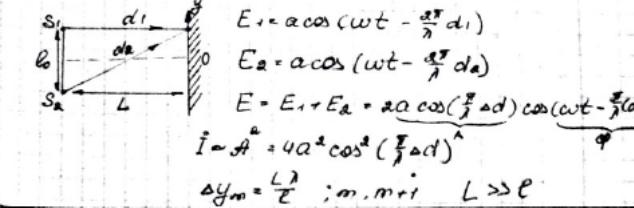 S₁ d₁ y
l₀ d₂ O
S₂ L
E₁ = a cos (ωt - 2π/λ d₁)
E₂ = a cos (ωt - 2π/λ d₂)
E = E₁ + E₂ = 2a cos(π/λ Δd) cos(ωt - π/λ(
A φ
I ~ A² = 4a² cos² (π/λ Δd)
Δyₘ = Lλ/l ; m, m+1 L >> l